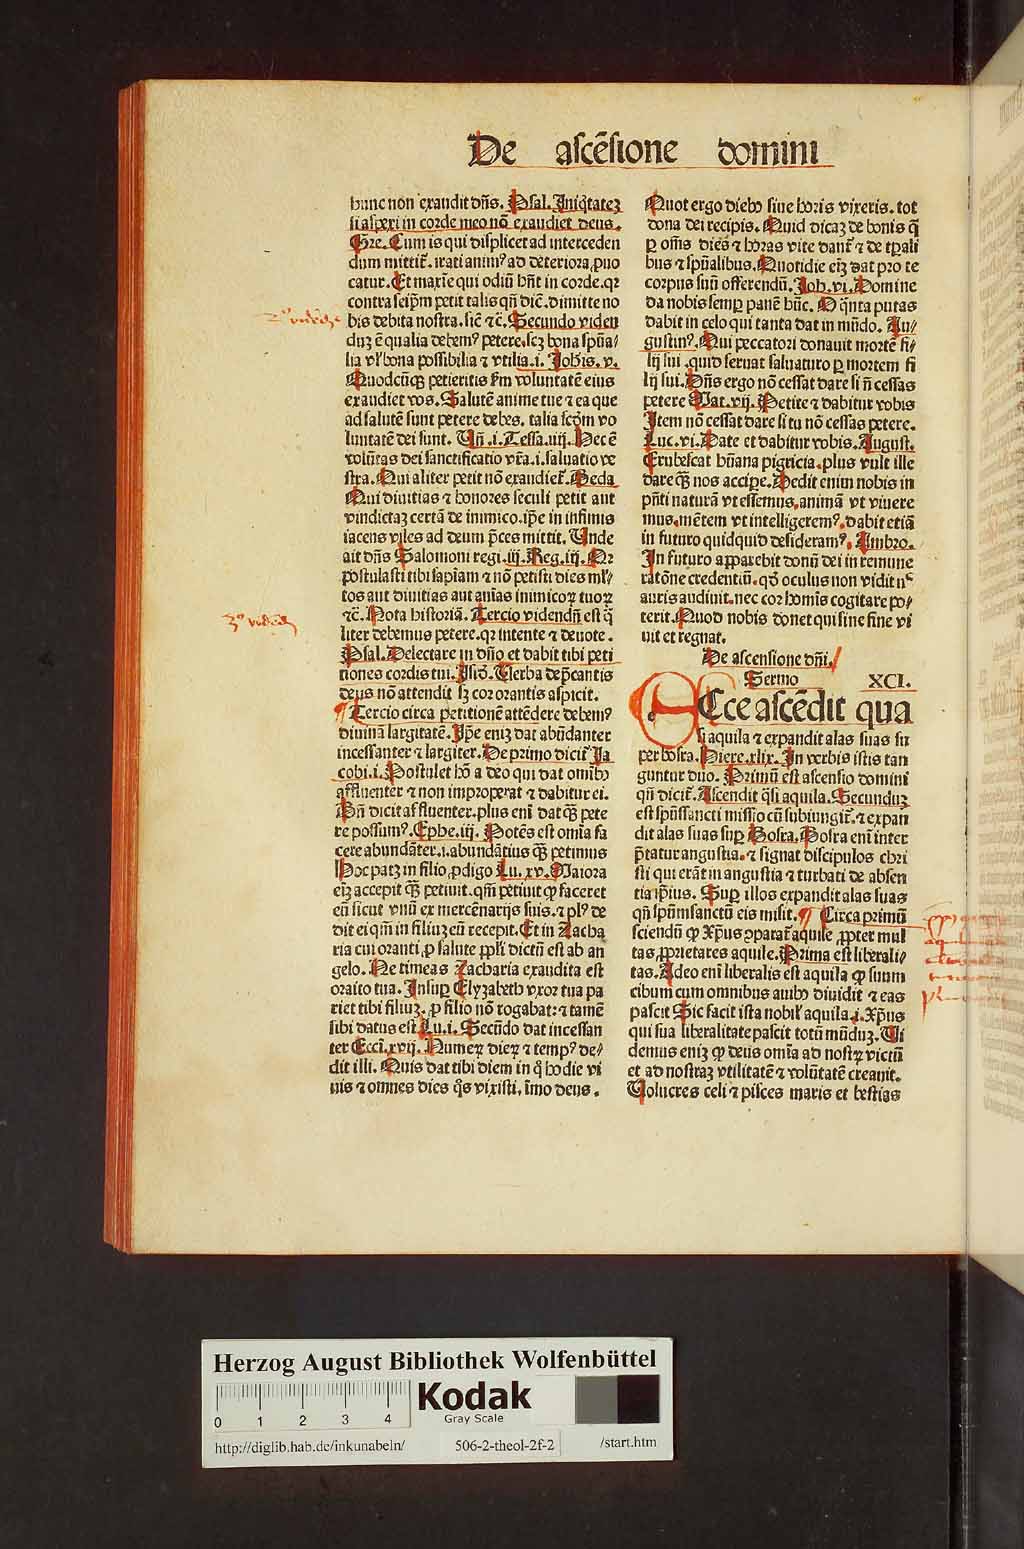 De ascēsione domini
hunc non exaudit dn̄s. Psal. Iniq̇tatez
si asperi in corde meo nō exaudiet deus.
Gre. Cum is qui displicet ad interceden
dum mittit᷑. irati animꝰ ad deteriora ꝓuo
catur. Et maxīe qui odiū hn̄t in corde. qꝛ
contra seip̄m petit talis qn̄ diē. dimitte no
bis debita nostra. sic̄ ⁊c̄. Secundo viden
duz ē qualia debemꝰ petere. scz bona spūa/
lia vl̓ bona possibilia ⁊ vtilia .i. Johis. v.
Quodcūqꝫ petieritis ẜm voluntatē eius
exaudiet vos. Salutē anime tue ⁊ ea que
ad salutē sunt petere debes. talia scd̄m vo
luntatē dei sunt. Vn̄ .i. Tessa. iiij. Hec ē
volūtas dei sanctificatio vr̄a .i. saluatio ve
stra. Qui aliter petit nō exaudiet᷑. Beda
Qui diuitias ⁊ honores seculi petit aut
vindictaz certā de inimico. ip̄e in infimis
iacens viles ad deum p̄ces mittit. Unde
ait dn̄s Salomoni regi .iij. Reg. iij. Qꝛ
postulasti tibi sapīam ⁊ nō petisti dies ml̓/
tos aut diuitias aut aīas inimicoꝝ tuoꝝ
⁊c̄. Nota historiā. Tercio videndū est q̄
liter debemus petere. qꝛ intente ⁊ deuote.
Psal. Delectare in dn̄o et dabit tibi peti
tiones cordis tui. Isid̄. Uerba dep̄cantis
deus nō attendit sꝫ cor orantis aspicit.
¶ Tercio circa petitionē attēdere debemꝰ
diuinā largitatē. Ip̄e eniz dat abūdanter
incessanter ⁊ largiter. De primo dicit᷑ Ja
cobi .i. Postulet hō a deo qui dat omībꝰ
affluenter ⁊ non improperat ⁊ dabitur ei.
Bn̄ dicit affluenter. plus eni dat qꝫ pete
re possumꝰ. Ephe. iij. Potēs est omīa fa
cere abundāter .i. abundātius qꝫ petimus
Hoc patz in filio ꝓdigo Lu. xv. Maiora
eiz accepit qꝫ petiuit. qm̄ petiuit ꝙ faceret
eū sicut vnū ex mercēnarijs suis. ⁊ plꝰ de
dit ei qm̄ in filiuz eū recepit. Et in Zacha
ria cui oranti ꝓ salute ppl̓i dictū est ab an
gelo. Ne timeas Zacharia exaudita est
oraīto tua. Insuꝑ Elyzabeth vxor tua pa
riet tibi filiuz. ꝓ filio nō rogabat: ⁊ tamē
sibi datus est Lu. i. Secūdo dat incessan
ter Ecci. xvij. Numeꝝ dieꝝ ⁊ tempꝰ de/
dit illi. Quis dat tibi diem in q̇ hodie vi
uis ⁊ omnes dies q̇s vixisti, īmo deus.
Quot ergo diebꝰ siue horis vixeris. tot
dona dei recipis. Quid dicaz de bonis q̄
ꝑ om̄s dies ⁊ horas vite dant᷑ ⁊ de tꝑali
bus ⁊ spūalibus. Quotidie eiz dat pro te
corpus suū offerendū. Joh. vi. Domine
da nobis semꝑ panē hūc. O q̄nta putas
dabit in celo qui tanta dat in mūdo. Au/
gustinꝰ. Qui peccatori donauit mortē fi/
lij sui. quid seruat saluaturo ꝑ mortem fi
lij sui. Dn̄s ergo nō cessat dare si n̄ cessas
petere Mat. vij. Petite ⁊ dabitur vobis
Item nō cessat dare si tu nō cessas petere.
Luc. vi. Date et dabitur vobis. August.
Erubescat hūana pigricia. plus vult ille
dare qꝫ nos accipe. Dedit enim nobis in
pn̄ti naturā vt essemus, animā vt viuere
mus, mētem vt intelligeremꝰ. dabit etiā
in futuro quidquid desideramꝰ. Ambro.
In futuro apparebit donū dei in remune
ratōne credentiū. qd̓ oculus non vidit nᶜ
auris audiuit. nec cor homīs cogitare po/
terit. Quod nobis donet qui sine fine vi
uit et regnat.
De ascensione dn̄i.
Sermo XCI.
Ecce ascēdit qua
si aquila ⁊ expandit alas suas su
per bosra. Hiere. xlix. In verbis istis tan
guntur duo. Primū est ascensio domini
qn̄ dicit᷑. Ascendit q̇si aquila. Secunduz
est spūssancti missio cū subiungit᷑. ⁊ expan
dit alas suas suꝑ Bosra. Bosra eni inter
p̄tatur angustia. ⁊ signat discipulos chri
sti qui erāt in angustia ⁊ turbati de absen
tia ip̄ius. Suꝑ illos expandit alas suas
qn̄ spūmsanctū eis misit. ¶ Circa primū
sciendū ꝙ xp̄us ꝯparat᷑ aquile ꝓpter mul
tas ꝓprietates aquile. Prima est liberali/
tas. Adeo eni liberalis est aquila ꝙ suum
cibum cum omnibus auibꝰ diuidit ⁊ eas
pascit Sic facit ista nobil̓ aquila .i. Xp̄us
qui sua liberalitate pascit totū mūduz. Vi
demus eniz ꝙ deus omīa ad nostꝝ victū
et ad nostraz vtilitatē ⁊ volūtatē creauit.
Volucres celi ⁊ pisces maris et bestias
Herzog August Bibliothek Wolfenbüttel
0 1 2 3 4
Kodak
Gray Scale
http://diglib.hab.de/inkunabeln/ 506-2-theol-2f-2 /start.htm